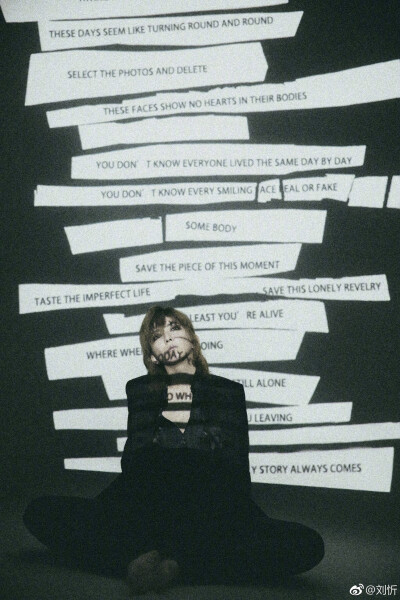 THESE DAYS SEEM LIKE TURNING ROUND AND ROUND
SELECT THE PHOTOS AND DELETE
THESE FACES SHOW NO HEARTS IN THEIR BODIES
YOU DON'T KNOW EVERYONE LIVED THE SAME DAY BY DAY
YOU DON'T KNOW EVERY SMILING ACE EAL OR FAKE
SOME BODY
SAVE THE PIECE OF THIS MOMENT
TASTE THE IMPERFECT LIFE SAVE THIS LONELY REVELRY
LEAST YOU'RE ALIVE
WHERE WHE ODAY OING
TILL ALONE
O WH
U LEAVING
Y STORY ALWAYS COMES
@刘忻